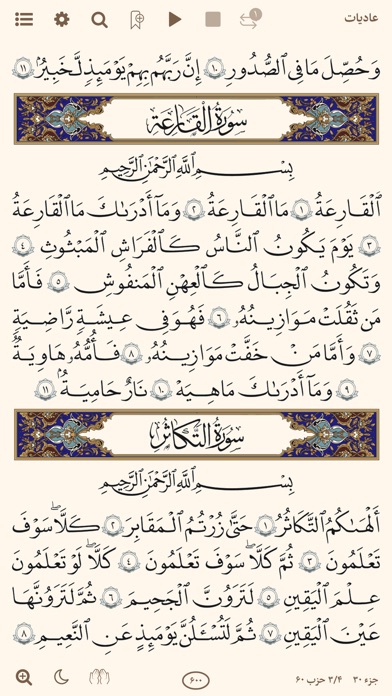 عادیات
1
وَحُصِّلَ مَا فِى ٱلصُّدُورِ ۝١٠ إِنَّ رَبَّهُم بِهِمْ يَوْمَئِذٍ لَّخَبِيرٌۢ ۝١١
سُورَةُ ٱلْقَارِعَة
بِسْمِ ٱللَّهِ ٱلرَّحْمَٰنِ ٱلرَّحِيمِ
ٱلْقَارِعَةُ ۝١ مَا ٱلْقَارِعَةُ ۝٢ وَمَآ أَدْرَىٰكَ مَا ٱلْقَارِعَةُ
۝٣ يَوْمَ يَكُونُ ٱلنَّاسُ كَٱلْفَرَاشِ ٱلْمَبْثُوثِ ۝٤
وَتَكُونُ ٱلْجِبَالُ كَٱلْعِهْنِ ٱلْمَنفُوشِ ۝٥ فَأَمَّا
مَن ثَقُلَتْ مَوَٰزِينُهُۥ ۝٦ فَهُوَ فِى عِيشَةٍ رَّاضِيَةٍ
۝٧ وَأَمَّا مَنْ خَفَّتْ مَوَٰزِينُهُۥ ۝٨ فَأُمُّهُۥ هَاوِيَةٌ
۝٩ وَمَآ أَدْرَىٰكَ مَا هِيَهْ ۝١٠ نَارٌ حَامِيَةٌۢ ۝١١
سُورَةُ ٱلتَّكَاثُر
بِسْمِ ٱللَّهِ ٱلرَّحْمَٰنِ ٱلرَّحِيمِ
أَلْهَىٰكُمُ ٱلتَّكَاثُرُ ۝١ حَتَّىٰ زُرْتُمُ ٱلْمَقَابِرَ ۝٢ كَلَّا سَوْفَ
تَعْلَمُونَ ۝٣ ثُمَّ كَلَّا سَوْفَ تَعْلَمُونَ ۝٤ كَلَّا لَوْ تَعْلَمُونَ
عِلْمَ ٱلْيَقِينِ ۝٥ لَتَرَوُنَّ ٱلْجَحِيمَ ۝٦ ثُمَّ لَتَرَوُنَّهَا
عَيْنَ ٱلْيَقِينِ ۝٧ ثُمَّ لَتُسْـَٔلُنَّ يَوْمَئِذٍ عَنِ ٱلنَّعِيمِ ۝٨
جزء ۳۰ ۳/۴ حزب ۶۰
۶۰۰